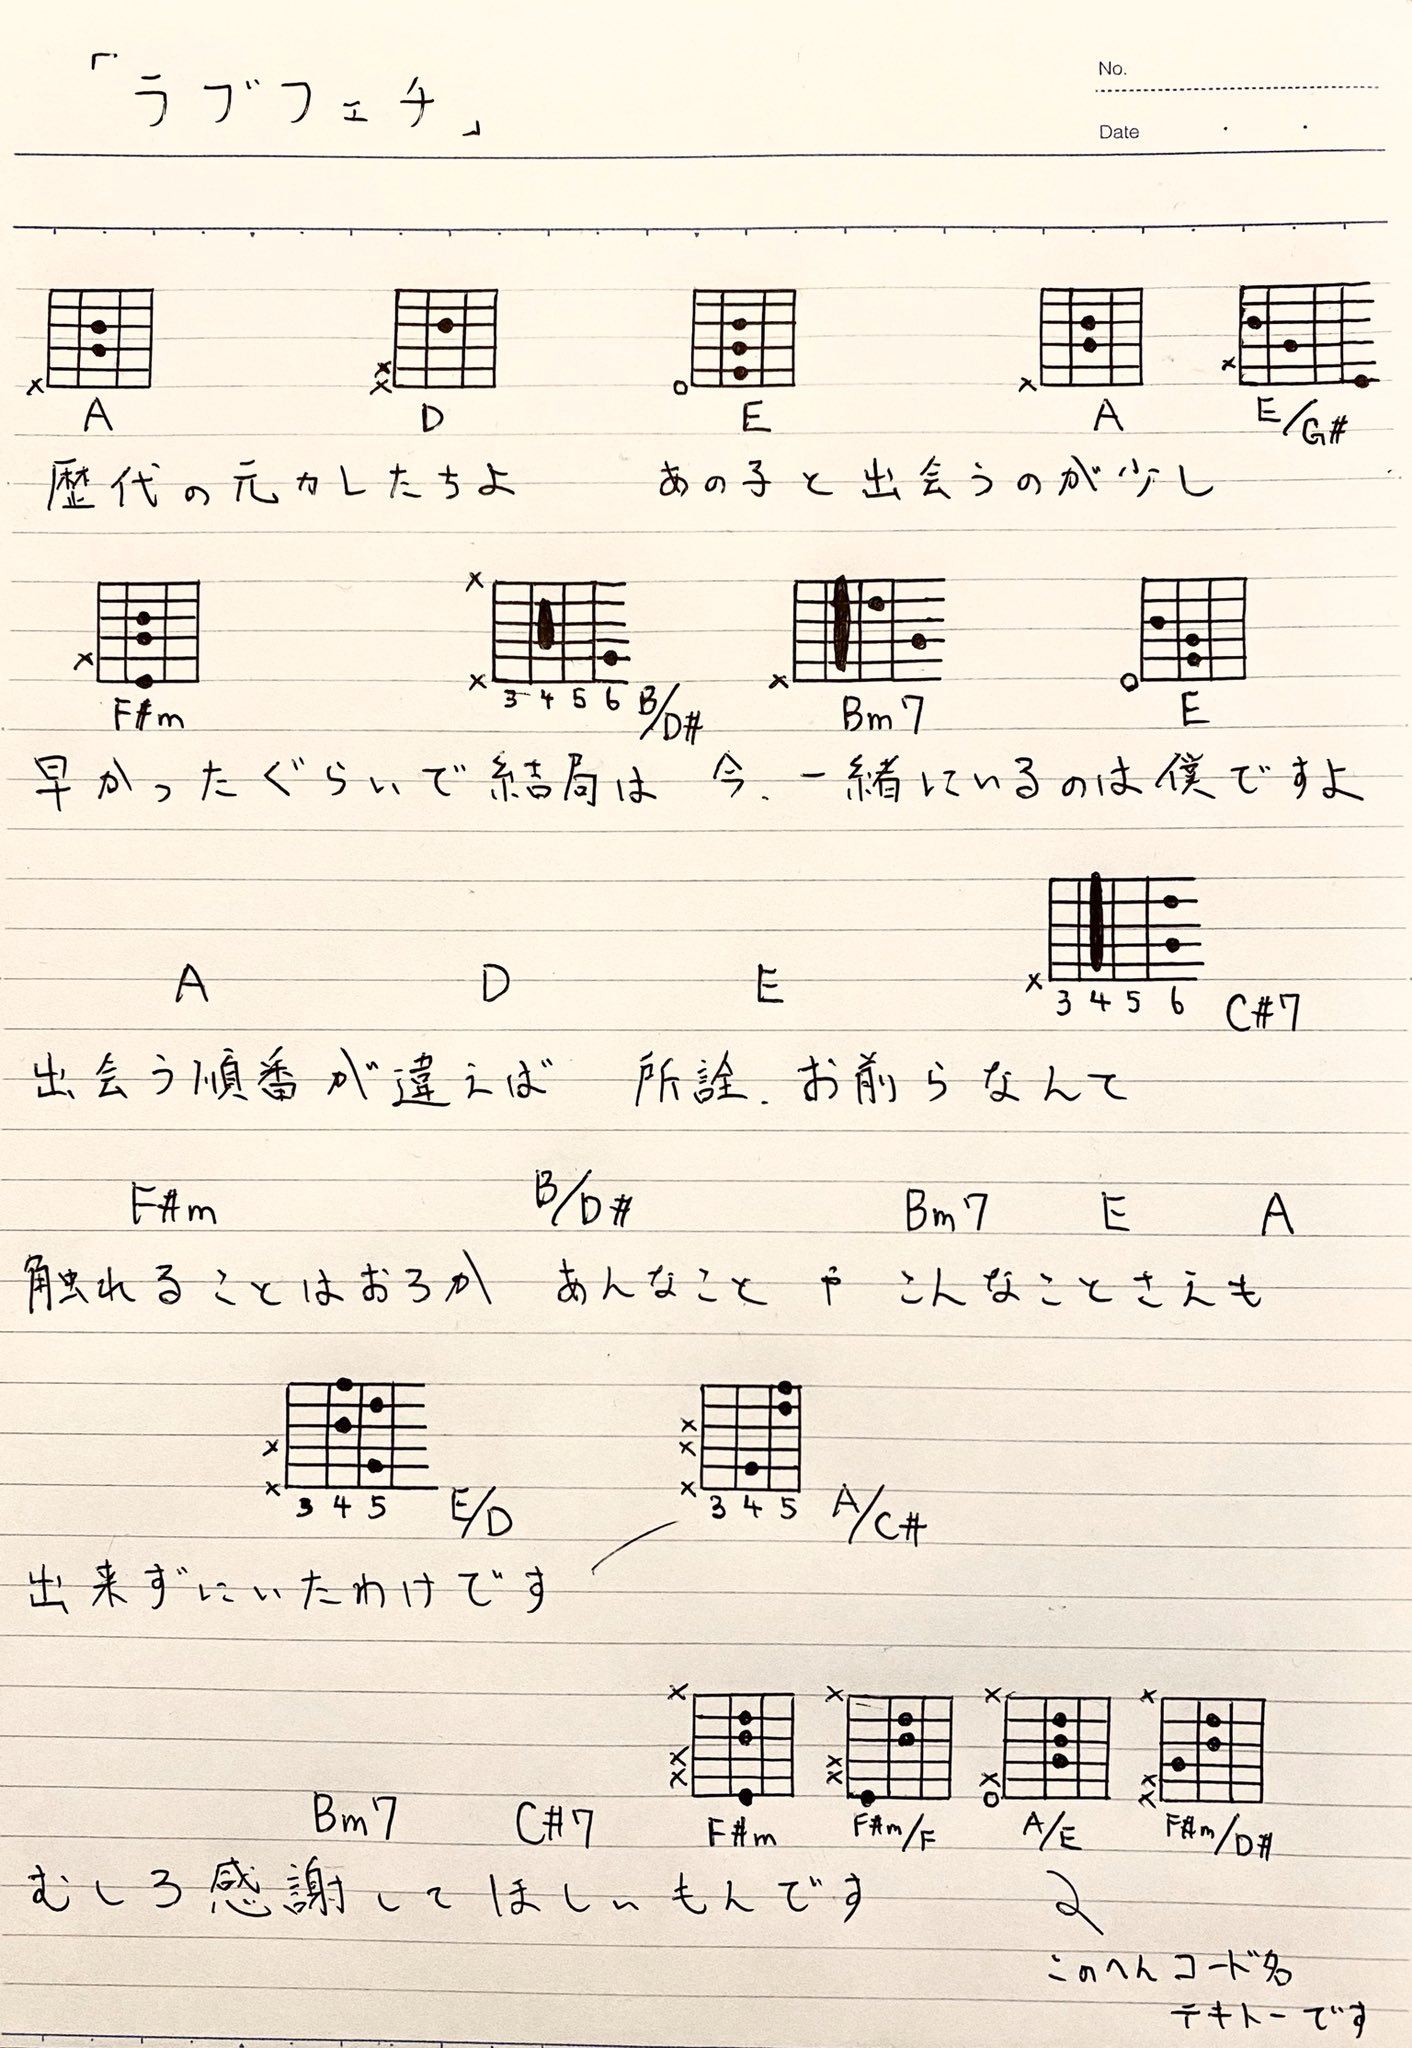 「ラブフェチ」
No.
Date
A D E A E/G#
歴代の元カレたちよ あの子と出会うのが少し
3 4 5 6
F#m B/D# Bm7 E
早かったぐらいで結局は 今、一緒にいるのは僕ですよ
3 4 5 6
A D E C#7
出会う順番が違えば 所詮、お前らなんて
F#m B/D# Bm7 E A
触れることはおろか あんなことや こんなことさえも
3 4 5 3 4 5
E/D A/C#
出来ずにいたわけです
Bm7 C#7 F#m F#m/F A/E F#m/D#
むしろ感謝してほしいもんです
このへんコード名
テキトーです